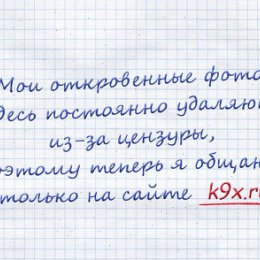 Мои откровенные фото
десь постоянно удаляю
из-за цензуры,
оэтому теперь я общаю
только на сайте k9x.ru